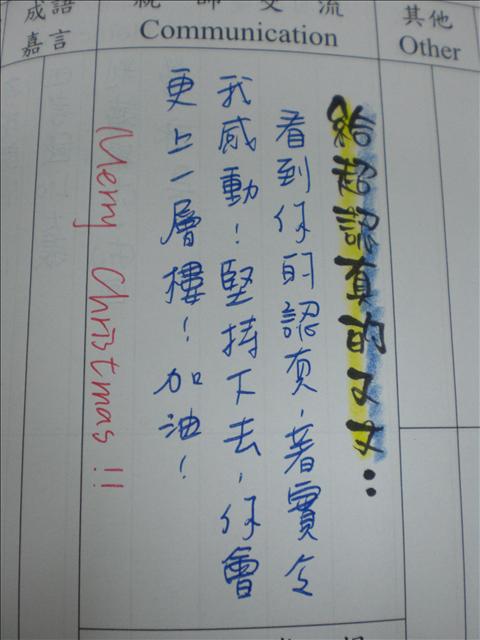 成語
嘉言
親師交流
Communication
其他
Other
給超認真的
看到你的認真，著實令
我感動！堅持下去，你會
更上一層樓！加油！
Merry Christmas !!